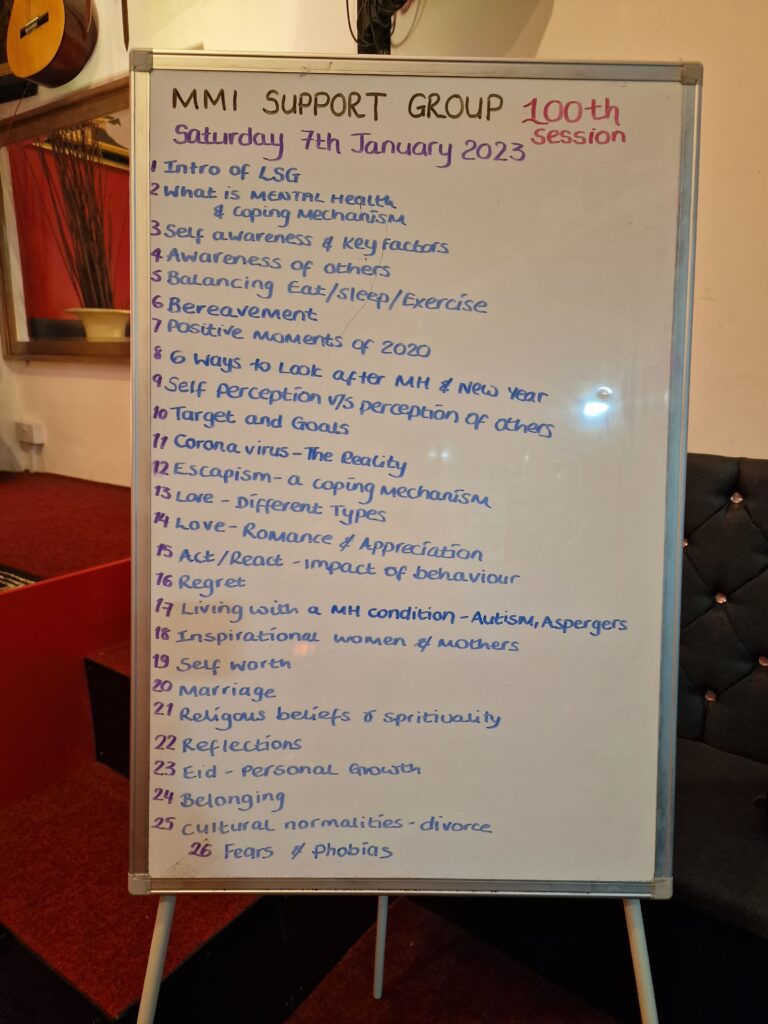 MMI SUPPORT GROUP 100th
Session
Saturday 7th January 2023
1 Intro of LSG
2 What is MENTAL Health
& coping Mechanism
3 Self awareness & Key Factors
4 Awareness of others
5 Balancing Eat/sleep/Exercise
6 Bereavement
7 Positive Moments of 2020
8 6 Ways to Look after MH & New Year
9 Self perception v/s perception of others
10 Target and Goals
11 Corona virus - The Reality
12 Escapism - a coping Mechanism
13 Love - Different Types
14 Love - Romance & Appreciation
15 Act/React - Impact of behaviour
16 Regret
17 Living with a MH condition - Autism, Aspergers
18 Inspirational women & Mothers
19 Self worth
20 Marriage
21 Religous beliefs & spritivality
22 Reflections
23 Eid - Personal Growth
24 Belonging
25 Cultural normalities - divorce
26 Fears & Phobias